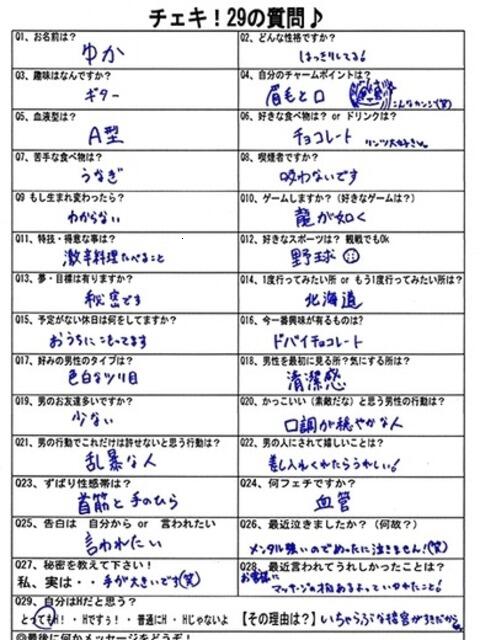 チェキ！29の質問♪
Q1、お名前は？
ゆか
Q2、どんな性格ですか？
はっきりしてる！
Q3、趣味はなんですか？
ギター
Q4、自分のチャームポイントは？
眉毛と口
こんなカンジ(笑)
Q5、血液型は？
A型
Q6、好きな食べ物は？ or ドリンクは？
チョコレート
リンツ大好き
Q7、苦手な食べ物は？
うなぎ
Q8、喫煙者ですか？
吸わないです
Q9 もし生まれ変わったら？
わからない
Q10、ゲームしますか？（好きなゲームは？）
龍が如く
Q11、特技・得意な事は？
激辛料理たべること
Q12、好きなスポーツは？ 観戦でもOk
野球
Q13、夢・目標は有りますか？
秘密です
Q14、1度行ってみたい所 or もう1度行ってみたい所は？
北海道
Q15、予定がない休日は何をしてますか？
おうちにこもってます
Q16、今一番興味が有るものは？
ドバイチョコレート
Q17、好みの男性のタイプは？
色白なツリ目
Q18、男性を最初に見る所？気にする所は？
清潔感
Q19、男のお友達多いですか？
少ない
Q20、かっこいい（素敵だな）と思う男性の行動は？
口調が穏やかな人
Q21、男の行動でこれだけは許せないと思う行動は？
乱暴な人
Q22、男の人にされて嬉しいことは？
差し入れくれたらうれしい！
Q23、ずばり性感帯は？
首筋と手のひら
Q24、何フェチですか？
血管
Q25、告白は 自分から or 言われたい
言われたい
Q26、最近泣きましたか？（何故？）
メンタル強いのでめったに泣きません！(笑)
Q27、秘密を教えて下さい！
私、実は・・手が大きいです(笑)
Q28、最近言われてうれしかったことは？
お客様に
マッサージの才能あるよっていわれたこと！
Q29、自分はHだと思う？
とってもH！・Hですぅ！・普通にH・Hじゃないよ 【その理由は？】いちゃらぶな接客がすきだから
◎最後に何かメッセージをどうぞ！